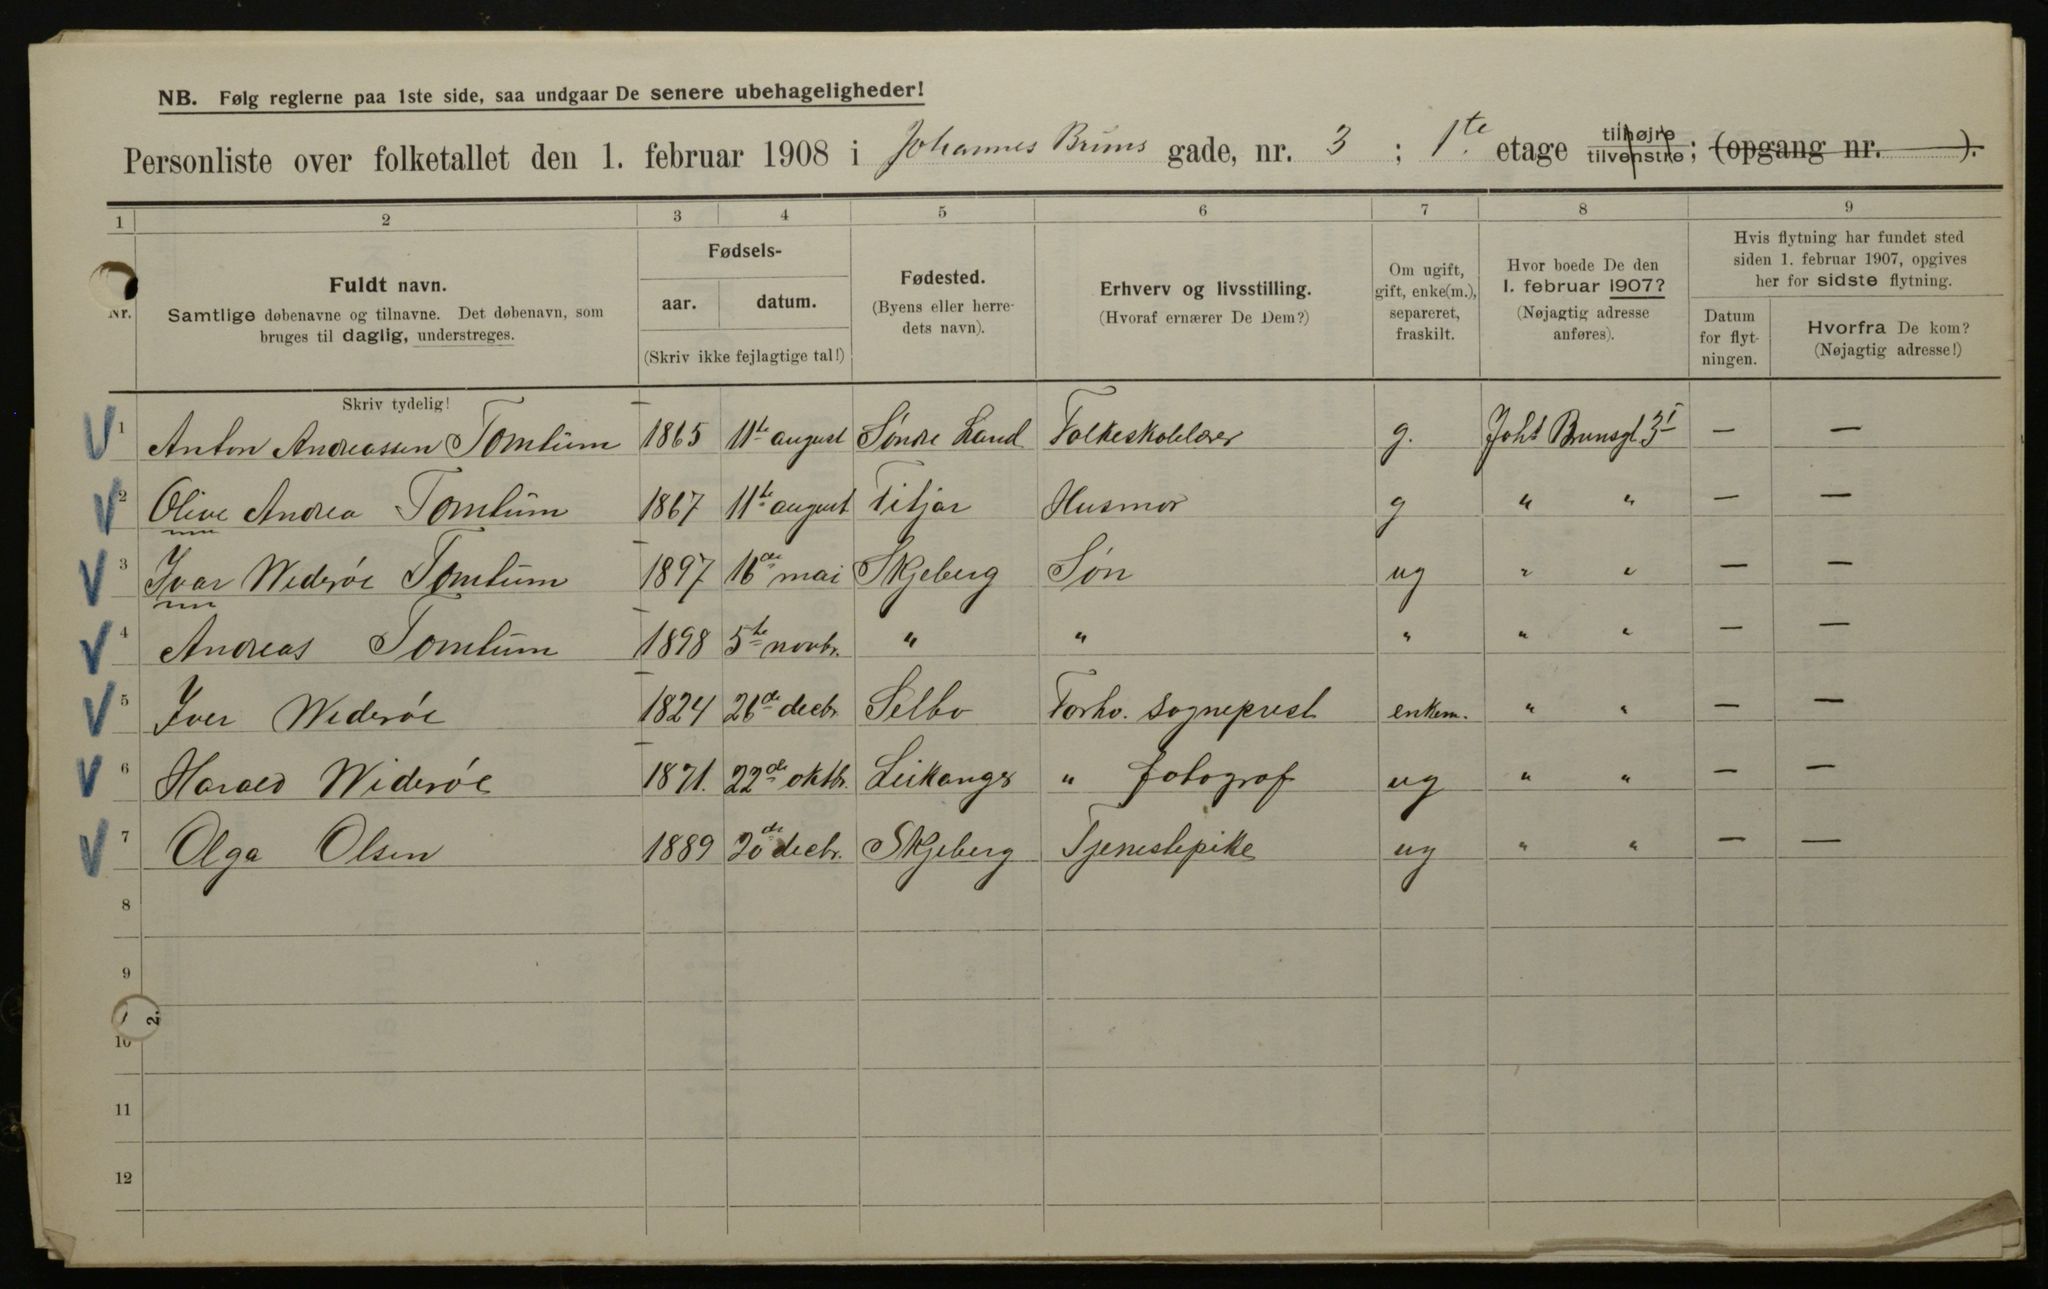 NB. Følg reglerne paa 1ste side, saa undgaar De senere ubehageligheder!
Personliste over folketallet den 1. februar 1908 i Johannes Bruns gade, nr. 3 ; 1te etage tilhøjre tilvenstre; (opgang nr. ).
1 2 3 4 5 6 7 8 9
Nr.
Fuldt navn.
Samtlige døbenavne og tilnavne. Det døbenavn, som
bruges til daglig, understreges.
Fødsels-
aar. datum.
(Skriv ikke fejlagtige tal!)
Fødested.
(Byens eller herre-
dets navn).
Erhverv og livsstilling.
(Hvoraf ernærer De Dem?)
Om ugift,
gift, enke(m.),
separeret,
fraskilt.
Hvor boede De den
1. februar 1907?
(Nøjagtig adresse
anføres).
Hvis flytning har fundet sted
siden 1. februar 1907, opgives
her for sidste flytning.
Datum
for flyt-
ningen.
Hvorfra De kom?
(Nøjagtig adresse!)
Skriv tydelig!
1 Anton Andreassen Tomtum 1865 11te august Søndre Land Folkeskolelærer g. Johs Brunsgt. 3I — —
2 Olive Andrea Tomtum 1867 11te august Fitjar Husmor g " " — —
3 Ivar Widerøe Tomtum 1897 16de mai Skjeberg Søn ug " " — —
4 Andreas Tomtum 1898 5te novbr. " " " " " — —
5 Iver Widerøe 1824 26de decbr. Selbo Forhv. sogneprest enkem. " " — —
6 Harald Widerøe 1871. 22de oktbr. Leikanger " fotograf ug " " — —
7 Olga Olsen 1889 20de decbr. Skjeberg Tjenestepike ug " " — —
8
9
2.
10
11
12